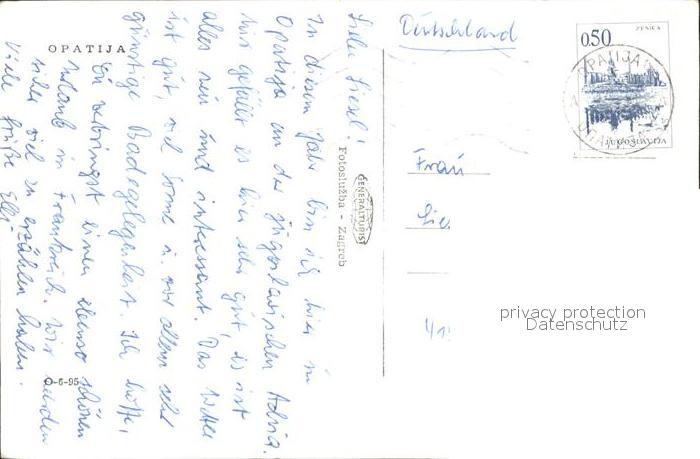 OPATIJA
Liebe Liesel!
In diesem Jahr bin ich hier in
Opatija an der jugoslawischen Adria.
Mir gefällt es hier sehr gut, es ist
alles neu und interessant. Das Wetter
ist gut, viel Sonne u. vor allem sehr
günstige Badegelegenheit. Ich hoffe,
Du verbringst einen ebenso schönen
Urlaub in Frankreich. Wir werden
sicher viel zu erzählen haben.
Viele Grüße Elli
O-6-95
Fotoslužba - Zagreb
GENERALTURIST
Deutschland
ZENICA
0.50
JUGOSLAVIJA
OPATIJA
Frau
Lie
41
privacy protection
Datenschutz